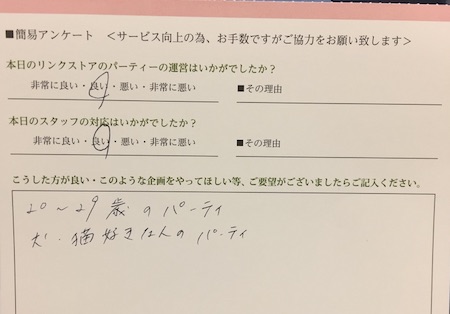 ■簡易アンケート ＜サービス向上の為、お手数ですがご協力をお願い致します＞
本日のリンクストアのパーティーの運営はいかがでしたか？
非常に良い・良い・悪い・非常に悪い ■その理由
本日のスタッフの対応はいかがでしたか？
非常に良い・良い・悪い・非常に悪い ■その理由
こうした方が良い・このような企画をやってほしい等、ご要望がございましたらご記入ください。
20～29歳のパーティ
犬・猫好きな人のパーティ